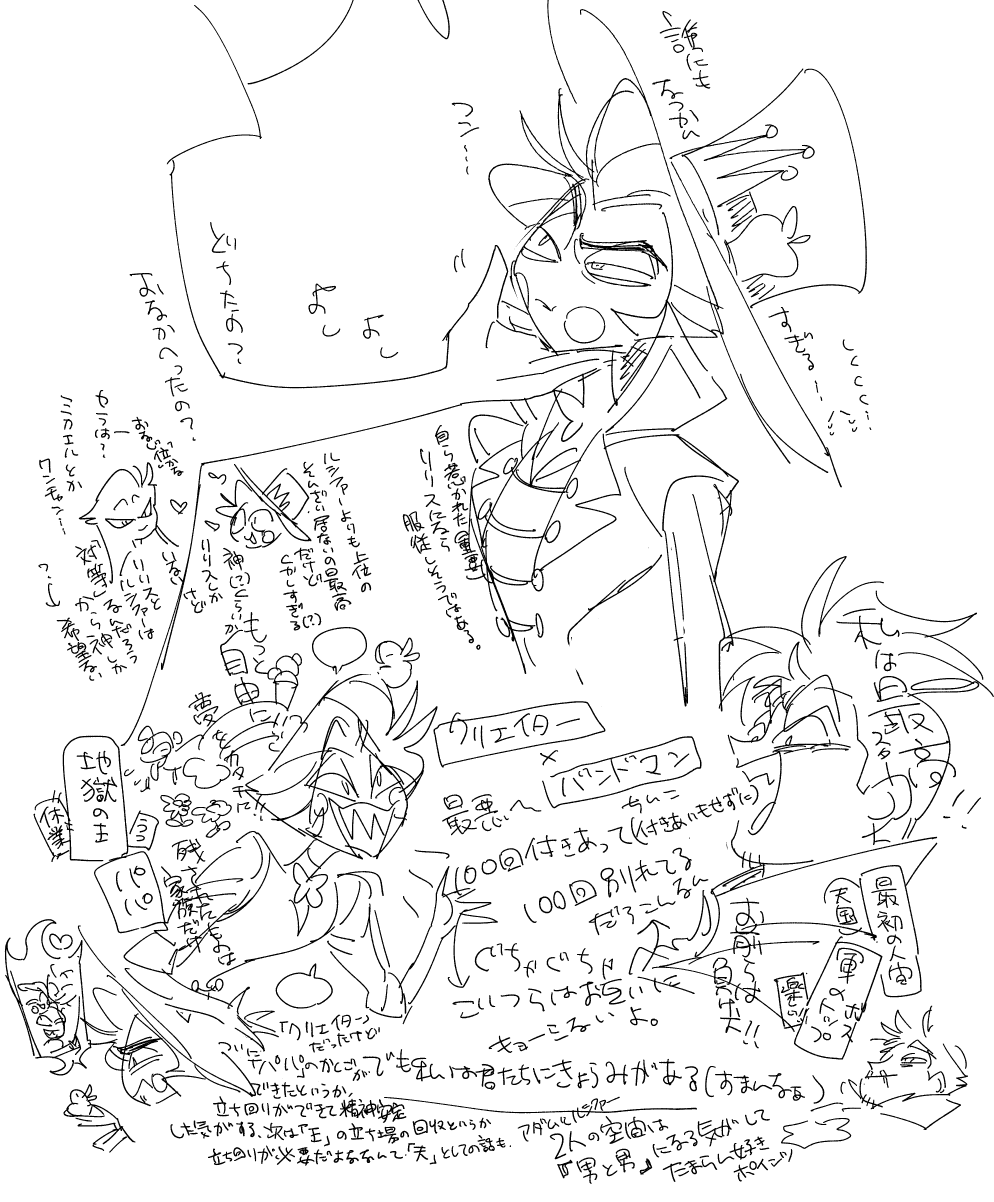 誰にも
なつかん
フン…
すぎるー
しくくく…
どちたの?
よし
よし
おなかへったの?
自ら惹かれた(重要)
リリスになら
服従しそうではある。
ルシファーよりも上位の
そんざい居ないの最高
だけど
しかしすぎる(?)
神(?)くらいか
リリスしか
いない
けど
ミカエルとか
ワンチャン…
リリスと
ルシファーは
「対等」なんだろう
から神しか
希望ない
もっと
自由に
夢を
カタチに!!
クリエイター
×
バンドマン
最悪〜
100回付きあって(付きあいもせずに)
100回別れてる
だろこんなん
ぐちゃぐちゃ
こいつらはお互いに
キョーミないよ。
でも私は君たちにきょうみがある(すまんなぁ)
私は最高
お前らは
最初の人宙
天国
軍のボス
トップ
地獄の王
休業
パパ
残された
家族だけ
「クリエイター」
だったけど
ついに「パパ」のかとごが
できたというか
立ち回りができて精神安定
した気がする、次は「王」の立ち場の回収というか
立ち回りが必要だよななんて、「夫」としての話も、
アダムとルシファー
2人の宇宙は
『男と男』になる気がして
たまらん好き
ポインツ